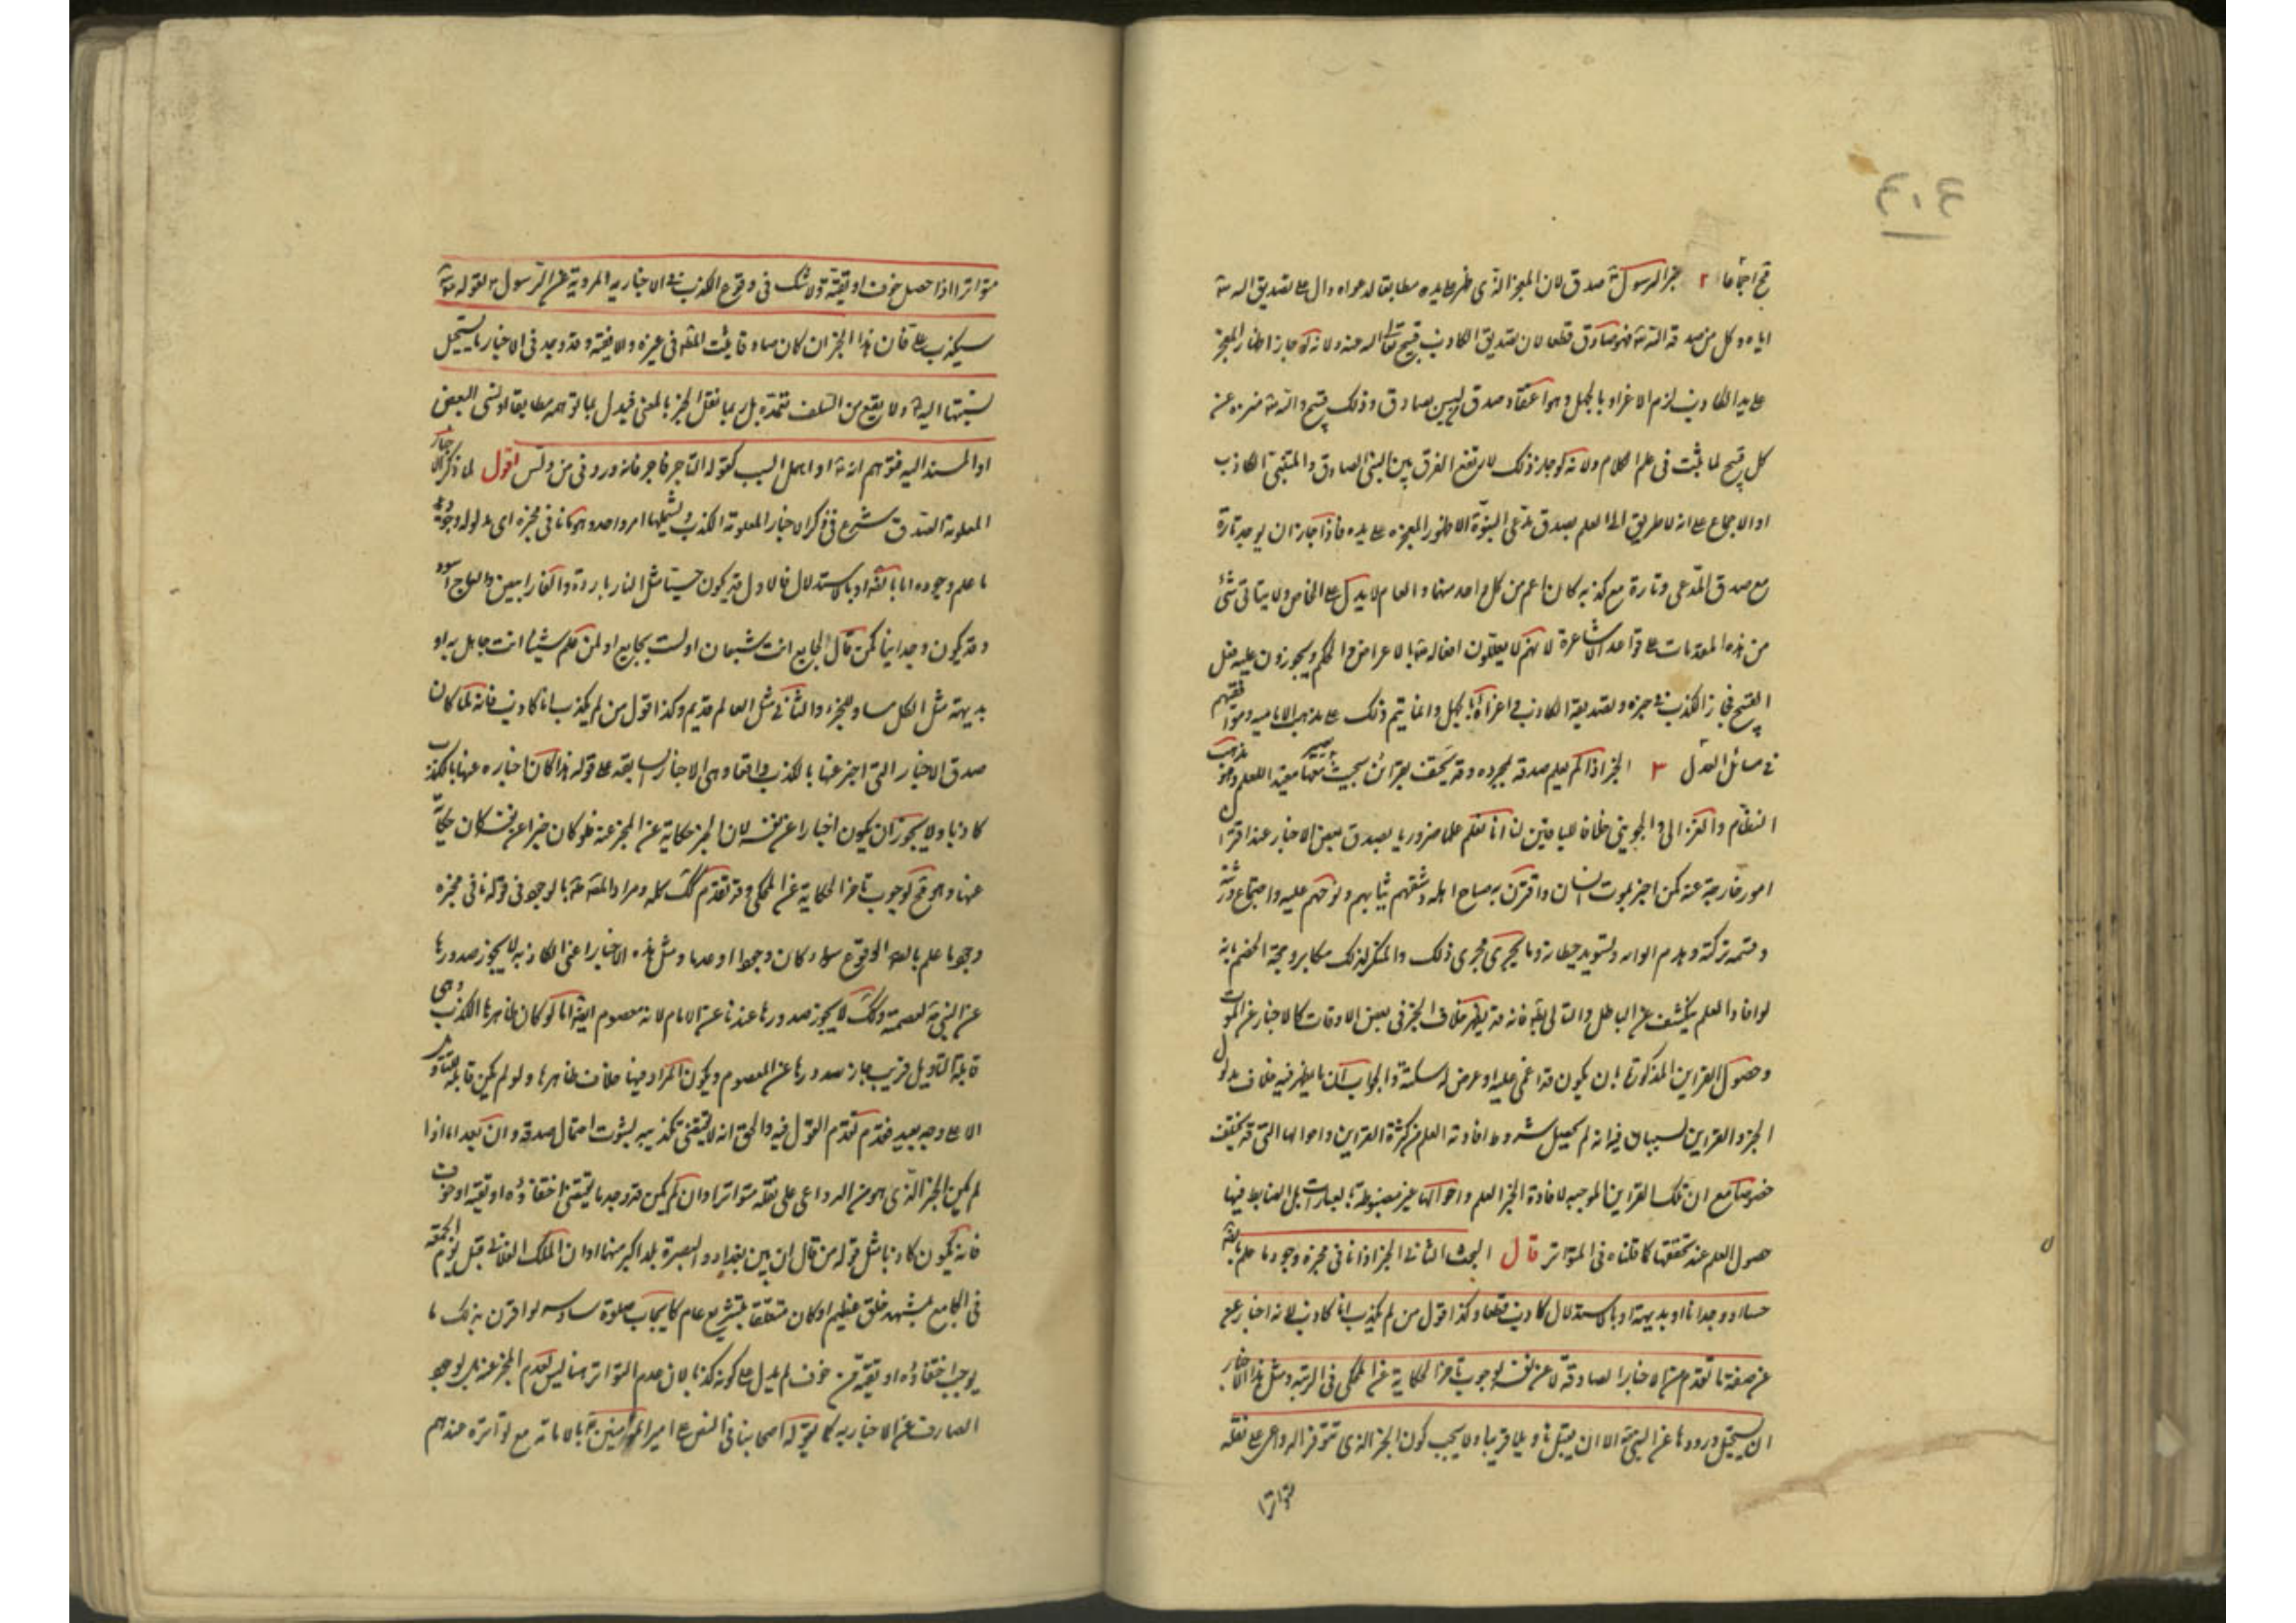 ٤٠٤
قبح اجماعا ٢ خبر الرسول ۴ صدق لان المعجز الذى ظهر على يده مطابقا لدعواه دال على تصديق الله تع
اياه وكل من صدقه الله تع فهو صادق قطعا لان تصديق الكاذب قبيح تعالى الله عنه ولانه لو جاز اظهار المعجز
على يد الكاذب لزم الاغراء بالجهل وهو اعتقاد صدق من ليس بصادق وذلك قبيح والله تع منزه عن
كل قبيح لما ثبت فى علم الكلام ولانه لو جاز ذلك لارتفع الفرق بين النبى الصادق والمتنبى الكاذب
اذ الاجماع على انه لا طريق الى العلم بصدق مدعى النبوة الا ظهور المعجزه على يده فاذا جاز ان يوجد تارة
مع صدق المدعى وتارة مع كذبه كان اعم من كل واحد منهما والعام لا يدل على الخاص ولا يتاتى شئ
من هذه المقدمات على قواعد الاشاعرة لانهم لا يعللون افعاله تع بالاعراض والحكم ويجوزون عليه فعل
القبيح فجاز الكذب فى خبره وتصديقه الكاذب واغراؤه بالجهل وانما يتم ذلك على مذهب الاماميه وموافقيهم
فى مسائل العدل ٣ الخبر اذا لم يعلم صدقه بمجرده وقد يحتف بقرائن بحيث يصير معها مفيدا للعلم وهو مذهب
النظام والغزالى والجوينى خلافا للباقين لنا انا نعلم علما ضروريا بصدق بعض الاخبار عند اقتران
امور خارجة عنه كمن اخبر بموت انسان واقترن به صياح اهله وشقهم ثيابهم ونوحهم عليه واجتماع ورثته
وقسمه تركته وهدم الدار وتسويد حيطانه وما يجرى مجرى ذلك والمنكر لذلك مكابر وحجة الخصم بانه
لو افاد العلم لم ينكشف عن الباطل والتالى بط فانه قد يظهر خلاف الخبر فى بعض الاوقات كالاخبار عن الموت
وحصول القراين المذكورة بان يكون قد اغمى عليه او عرض له سكتة والجواب ان ما يظهر فيه خلاف مدلول
الخبر والقراين لسبب ان فيه انه لم يحصل شروط افادته العلم من كثرة القراين واحوالها التى قد يختلف
خصوصا مع ان تلك القراين الموجبه لافادة الخبر العلم واحوالها غير مضبوطة بالعبارات بل الضابط فيها
حصول العلم عند تحققها كما قلناه فى المتواتر قال البحث الثانى الخبر اذا نافى مخبره وجود ما علم بالضرورة
حسا او وجدانا او بديهة او بالاستدلال كاذب قطعا وكذا قول من لم يكذب انا كاذب لانه اخبار عن
عن صفة ما تقدم من الاخبار الصادقة لا عن نفسه لوجوب تاخر الحكاية عن المحكى فى الرتبه ومثل هذا الاخبار
ان يستحيل ورودها عن النبى ۴ الا ان يقبل تاويلا قريبا ولا يجب كون الخبر الذى تتوفر الدواعى على نقله
متواترا
متواترا اذا حصل خوف او تقية ولا شك فى وقوع الكذب فى الاخبار المروية عن الرسول ۴ لقوله ۴
سيكذب على فان هذا الخبر ان كان صادقا ثبت المط فى غيره والا فيه وقد وجد فى الاخبار ما يستحيل
نسبتها اليه ۴ ولا يقع من السلف تعمده بل ربما نقل الخبر بالمعنى فيبدل بما توهمه مطابقا او نسى البعض
او المسند اليه فتوهم انه ۴ او اهمل السبب كقوله التاجر فاجر فانه ورد فى من دلس اقول لما ذكر الاخبار
المعلومة الصدق شرع فى ذكر الاخبار المعلومة الكذب ويشملها امر واحد وهو ما نافى مخبره اى مدلوله وجود
ما علم وجوده اما بالضرورة او بالاستدلال فالاول قد يكون حسيا مثل النار باردة والقار ابيض والعاج اسود
وقد يكون وجدانيا كمن قال لجايع انت شبعان او لست بجايع او لمن علم شيئا انت جاهل به او
بديهة مثل الكل مساو للجزء والثانى مثل العالم قديم وكذا قول من لم يكذب انا كاذب فانه لما كان
صدق الاخبار التى اخبر عنها بالكذب واقعا وهى الاخبار السابقه على قوله هذا كان اخباره عنها بالكذب
كاذبا ولا يجوز ان يكون اخبارا عن نفسه لان الخبر حكاية عن المخبر عنه فلو كان خبرا عن نفسه كان حكاية
عنها وهو قبح لوجوب تاخر الحكاية عن المحكى وقد تقدم لك كله ومراد المصنف بالوجود فى قوله نافى مخبره
وجود ما علم بالضرورة الوقوع سواء كان وجودا او عدما ومثل هذه الاخبار اعنى الكاذبه لا يجوز صدورها
عن النبى ۴ لعصمته وكذلك لا يجوز صدورها عندنا عن الامام لانه معصوم ايضا اما لو كان ظاهرها الكذب وهى
قابلة التاويل قريب جاز صدورها عن المعصوم ويكون المراد منها خلاف ظاهرها ولو لم يكن قابلة للتاويل
الا على وجه بعيد فقد تقدم القول فيه والحق انه لا يقتضى تكذيبه لثبوت احتمال صدقه وان بعد اما اذا
لم يكن الخبر الذى هو من الدواعى على نقله متواترا وان لم يكن قد وجد ما يقتضى اخفاؤه او تقية او خوف
فانه يكون كاذبا مثل قوله من قال ان بين بغداد والبصرة بلد اكبر منهما او ان الملك الفلانى قتل يوم الجمعة
فى الجامع بمشهد خلق عظيم او كان متعلقا بتشريع عام كايجاب صلوة سادسه لو اقترن بذلك ما
يوجب اخفاؤه او تقية من خوف لم يدل على كونه كذبا لان عدم التواتر هنا ليس لعدم المخبر عنه بل لوجود
الصارف عن الاخبار به كما يقوله اصحابنا فى النص على امير المؤمنين ۴ بالامامة مع تواتره عندهم